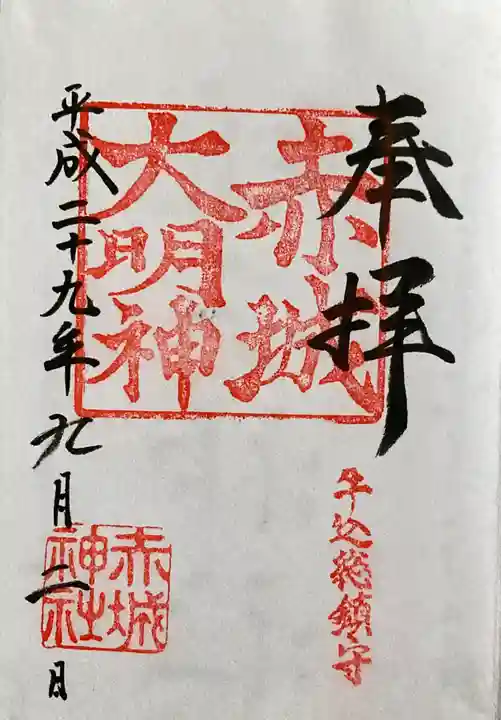 奉拝
赤城
大明神
牛込総鎮守
赤城
神社
平成二十九年九月二日